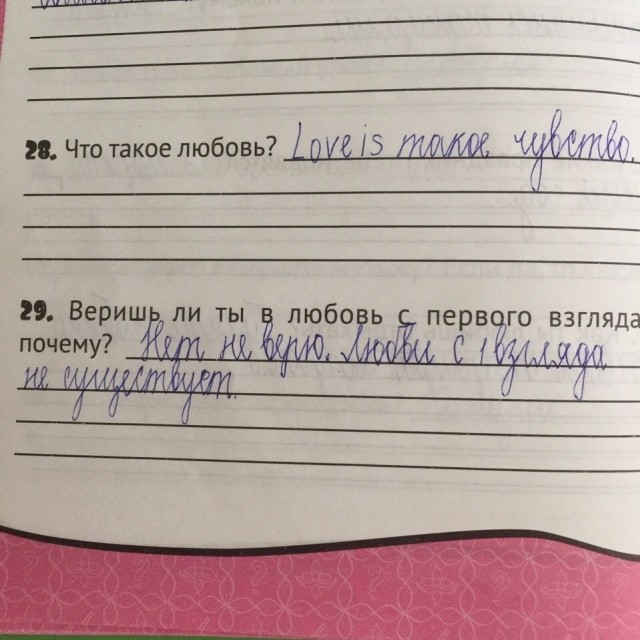 28. Что такое любовь? Love is такое чувство.
29. Веришь ли ты в любовь с первого взгляда
почему? Нет не верю. Любви с 1 взгляда
не существует.